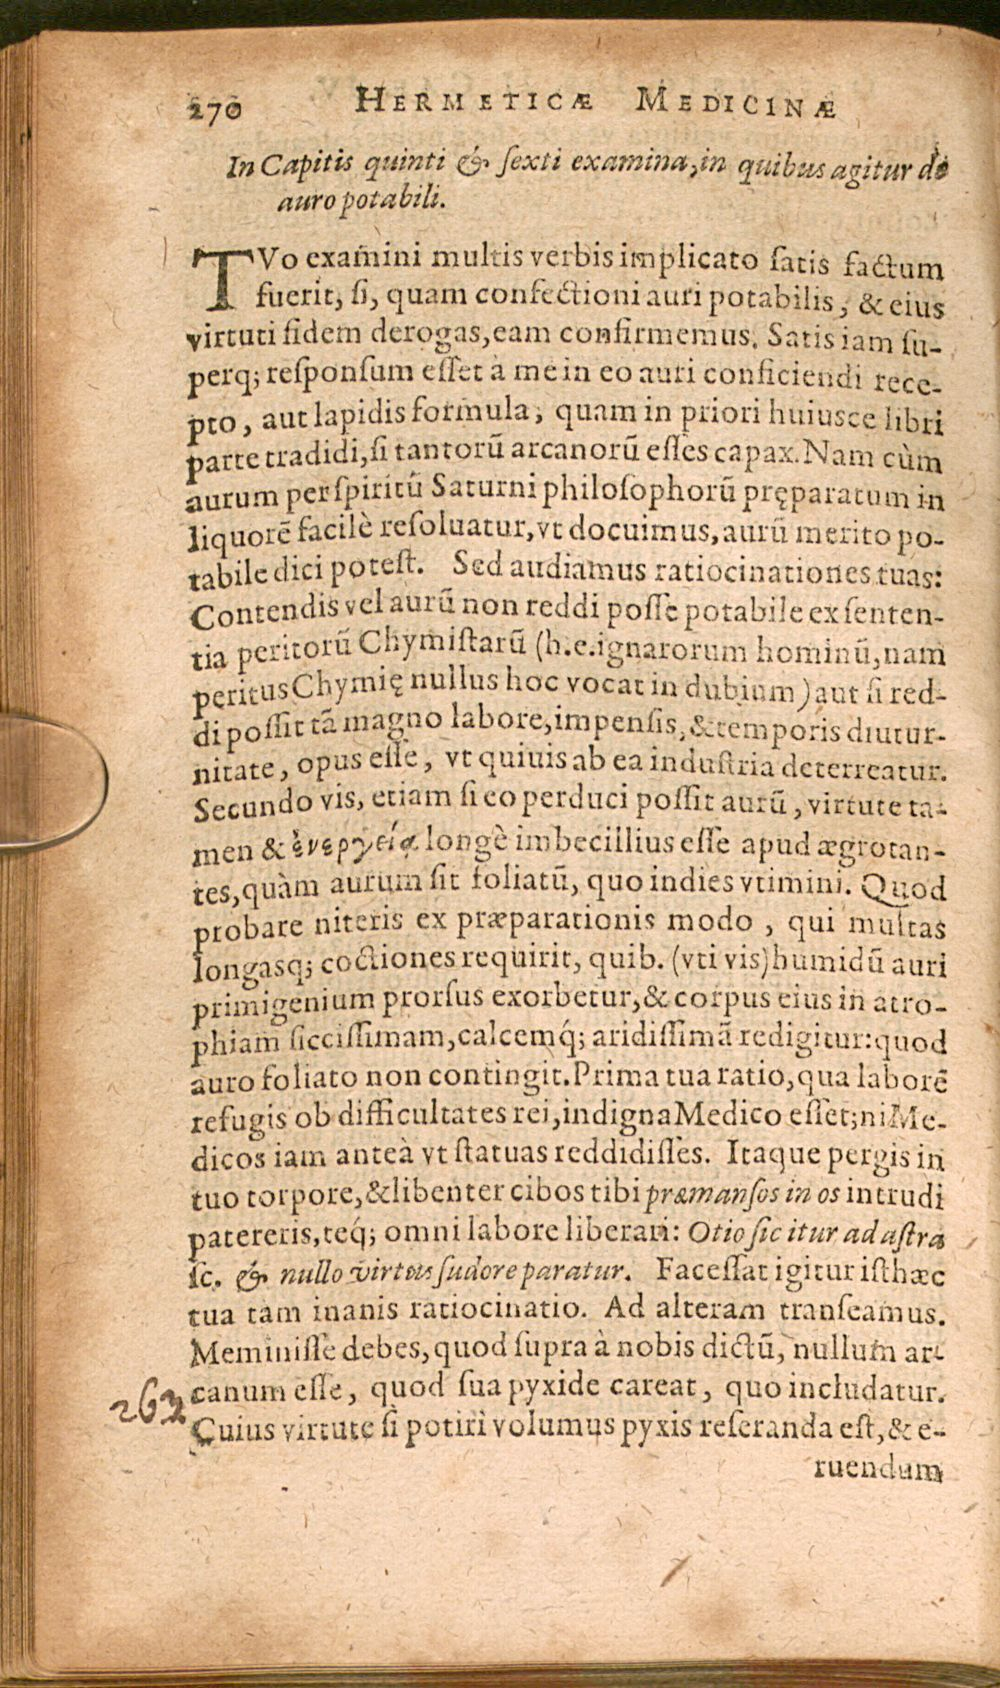 270 HERMETICÆ MEDICINÆ
In Capitis quinti & ſexti examina, in quibus agitur de
auro potabili.
TVo examini multis verbis implicato ſatis factum
fuerit, ſi, quam confectioni auri potabilis, & eius
virtuti fidem derogas, eam confirmemus. Satis iam ſu-
perq; reſponſum eſſet à me in eo auri conficiendi rece-
pto, aut lapidis formula, quam in priori huiusce libri
parte tradidi, ſi tantorũ arcanorũ eſſes capax. Nam cùm
aurum per ſpiritũ Saturni philoſophorũ pręparatum in
liquorẽ facilè reſoluatur, vt docuimus, aurũ merito po-
tabile dici poteſt. Sed audiamus ratiocinationes tuas:
Contendis vel aurũ non reddi poſſe potabile ex ſenten-
tia peritorũ Chymiſtarũ (h.e. ignarorum hominũ, nam
peritus Chymię nullus hoc vocat in dubium) aut ſi red-
di poſſit tã magno labore, impenſis, & temporis diutur-
nitate, opus eſſe, vt quiuis ab ea induſtria deterreatur.
Secundo vis, etiam ſi eo perduci poſſit aurũ, virtute ta-
men & ἐνεργεία longè imbecillius eſſe apud ægrotan-
tes, quàm aurum ſit foliatũ, quo indies vtimini. Quod
probare niteris ex præparationis modo, qui multas
longasq; coctiones requirit, quib. (vti vis) humidũ auri
primigenium prorſus exorbetur, & corpus eius in atro-
phiam ſicciſſimam, calcemq́; aridiſſimã redigitur: quod
auro foliato non contingit. Prima tua ratio, qua laborẽ
refugis ob difficultates rei, indigna Medico eſſet; ni Me-
dicos iam anteà vt ſtatuas reddidiſſes. Itaque pergis in
tuo torpore, & libenter cibos tibi præmanſos in os intrudi
patereris, teq́; omni labore liberari: Otio ſic itur ad aſtra
ſc. & nullo virtus ſudore paratur. Faceſſat igitur iſthæc
tua tam inanis ratiocinatio. Ad alteram tranſeamus.
Meminiſſe debes, quod ſupra à nobis dictũ, nullum ar-
canum eſſe, quod ſua pyxide careat, quo includatur.
263
Cuius virtute ſi potiri volumus pyxis reſeranda eſt, & e-
ruendum